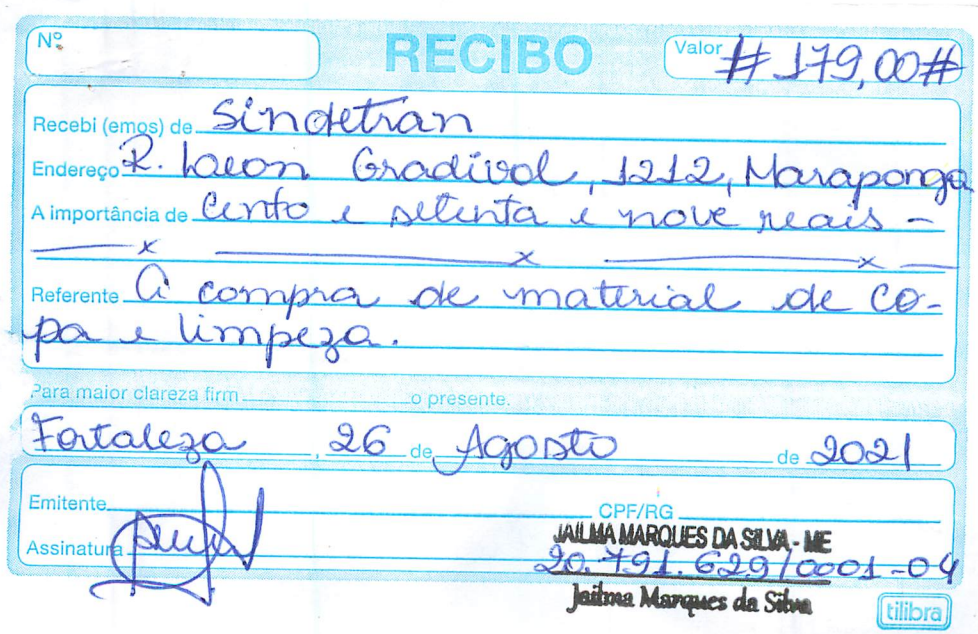 Nº RECIBO Valor # 179,00#
Recebi (emos) de Sindetran
Endereço R. Gradivol, 1212, Maraponga
A importância de Cento e setenta e nove reais -
x x x
Referente A compra de material de co-
pa e limpeza.
Para maior clareza firm o presente.
Fortaleza, 26 de Agosto de 2021
Emitente CPF/RG
JAILMA MARQUES DA SILVA - ME
Assinatura 20.791.629/0001-04
Jailma Marques da Silva
tilibra